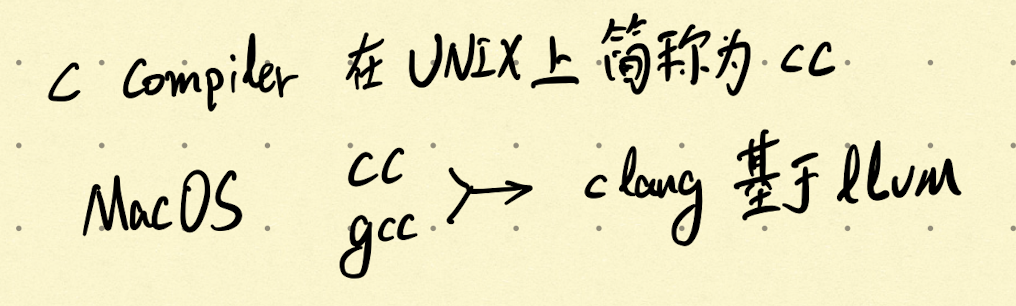 C Compiler 在 UNIX 上 简称为 cc
MacOS cc gcc → clang 基于 llvm